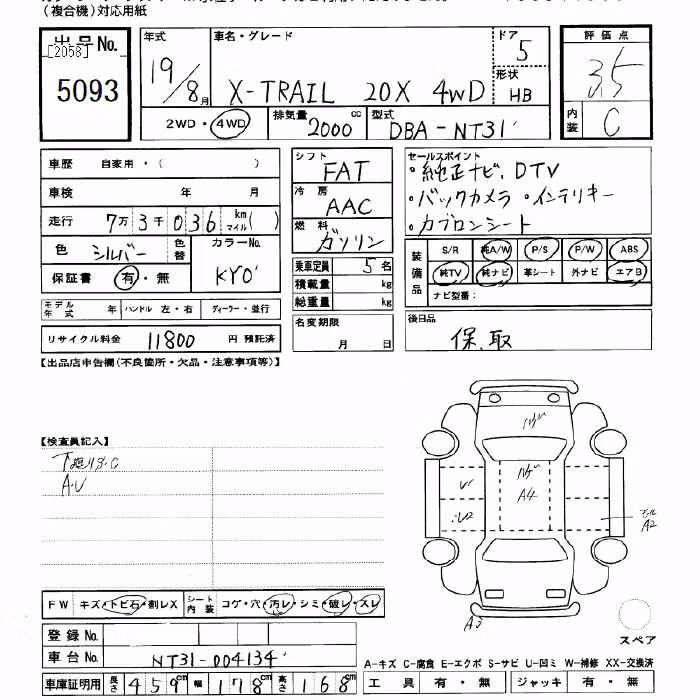 (複合機)対応用紙
出品No.
[2058]
5093
年式
19/8月
車名・グレード
X-TRAIL 20X 4WD
ドア
5
形状
HB
評価点
3.5
内装
C
2WD・4WD
排気量
2000cc
型式
DBA-NT31
車歴 自家用・( )
車検 年 月
走行 7万3千036 km マイル( )
色 シルバー 色替
カラーNo.
KY0
保証書 有・無
モデル年式 年 ハンドル 左・右 ディーラー・並行
リサイクル料金 11800 円 預託済
シフト
FAT
冷房
AAC
燃料
ガソリン
乗車定員 5名
積載量 kg
総重量 kg
名変期限
月 日
セールスポイント
・純正ナビ、DTV
・バックカメラ ・インテリキー
・カブロンシート
装備品
S/R 純A/W P/S P/W ABS
純TV 純ナビ 革シート 外ナビ エアB
ナビ型番:
後日品
保、取
【出品店申告欄(不良箇所・欠品・注意事項等)】
【検査員記入】
A・U
U1
U2
A4
A2
A3
FW キズ・トビ石・割レX シート内装 コゲ・穴・汚レ・シミ・破レ・スレ
登録No.
車台No. NT31-004134
車庫証明用 長さ 459cm 幅 178cm 高さ 168cm
スペア
A-キズ C-腐食 E-エクボ S-サビ U-凹ミ W-補修 XX-交換済
工具 有・無 ジャッキ 有・無